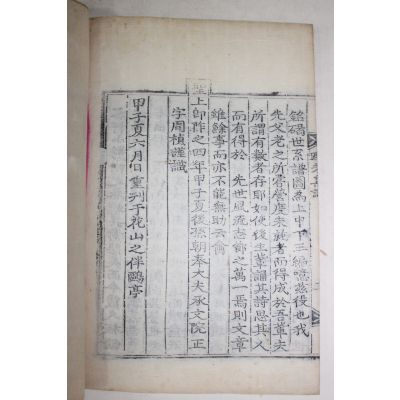 銘碣世系譜圖爲上中下三編噫玆役也我
先父老之所嘗營度未就者而得成於吾輩夫
所謂有數者存耶如使後生輩誦其詩思其人
而有得於 先世風流志節之萬一焉則文章
雖餘事而亦不能無助云爾
上卽祚之四年甲子夏後孫朝奉大夫承文院正
字周楨謹識
甲子夏六月日重刊于花山之伴鷗亭